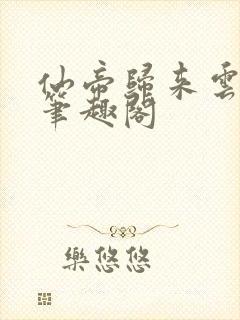 仙帝歸来雲
筆趣閣
樂悠悠